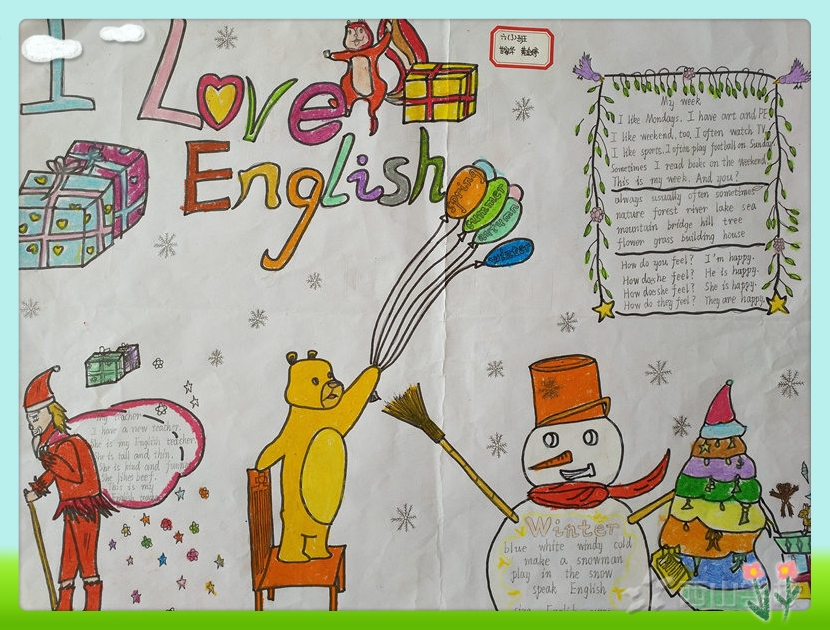 I Love
English
六(1)班
spring
summer
autumn
winter
My week
I like Mondays. I have art and PE
I like weekend, too. I often watch TV
I like sports. I often play football on Sunday
Sometimes I read books on the weekend
This is my week. And you?
always usually often sometimes
nature forest river lake sea
mountain bridge hill tree
flower grass building house
How do you feel? I'm happy.
How does he feel? He is happy.
How does she feel? She is happy.
How do they feel? They are happy.
My teacher
I have a new teacher.
She is my English teacher
She is tall and thin.
She is kind and funny
She likes beef.
This is my
English teacher
Winter
blue white windy cold
make a snowman
play in the snow
speak English